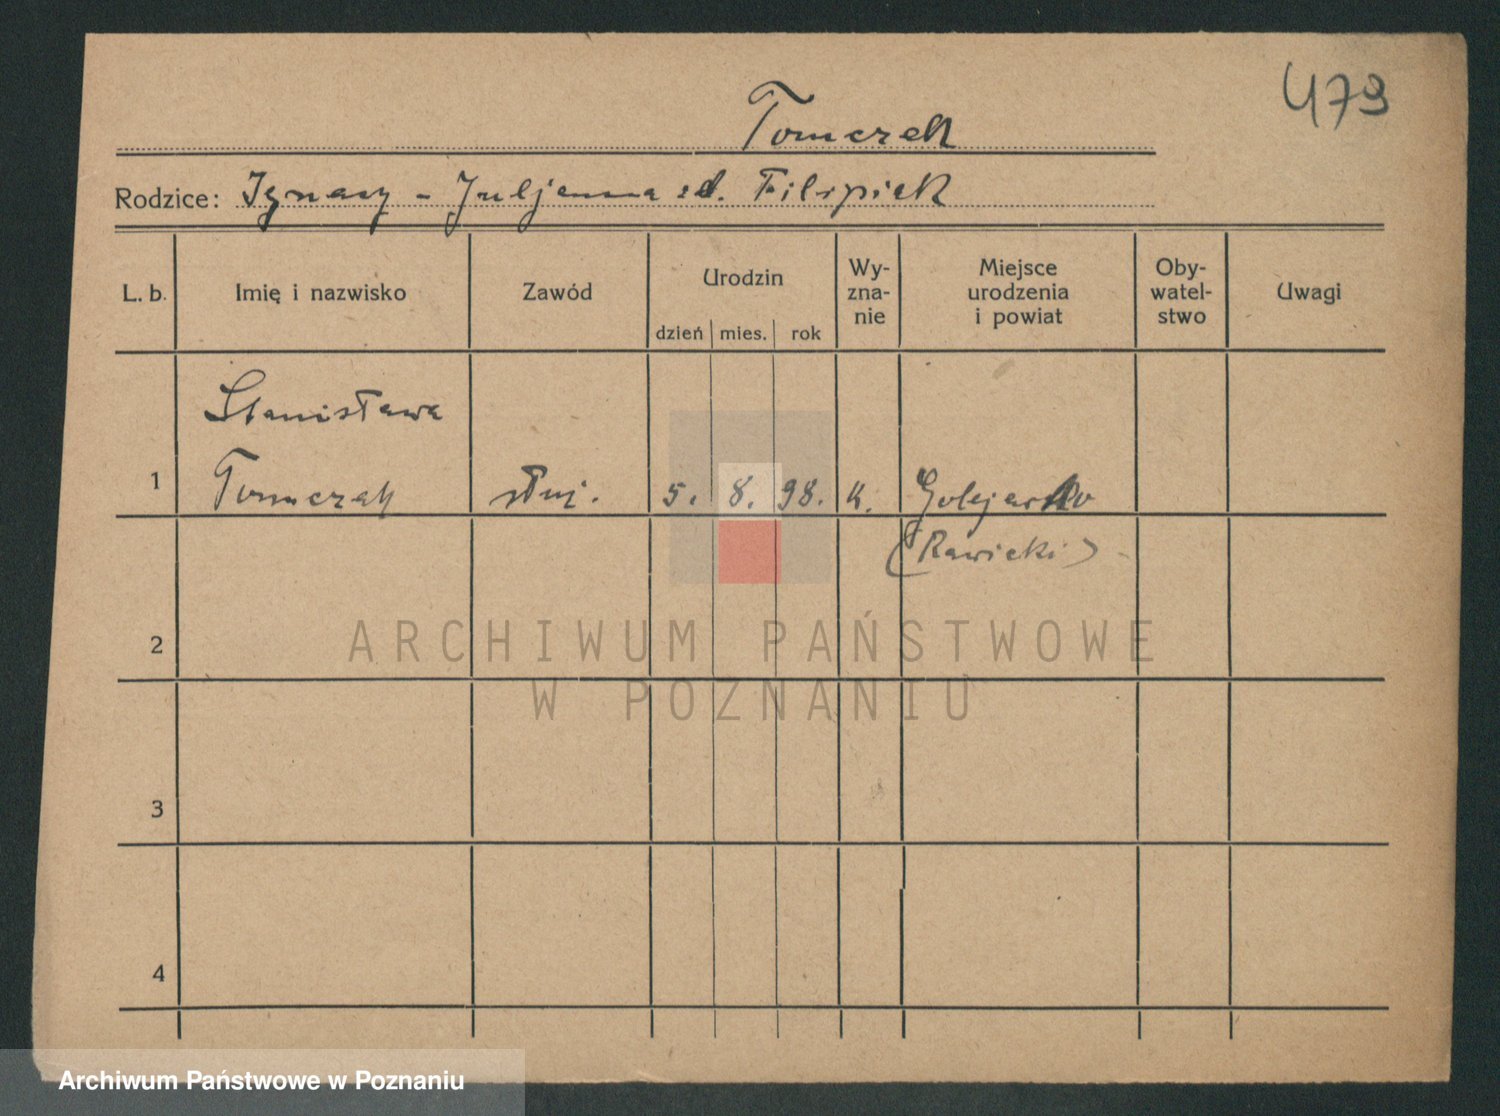 473
Tomczak
Rodzice: Ignacy - Juljanna zd. Filipiak
L. b. Imię i nazwisko Zawód Urodzin Wy-zna-nie Miejsce urodzenia i powiat Oby-watel-stwo Uwagi
dzień mies. rok
Stanisława
1 Tomczak służ. 5. 8. 98. k. Golejewko
(Rawicki)
2
ARCHIWUM PAŃSTWOWE
W POZNANIU
3
4
Archiwum Państwowe w Poznaniu